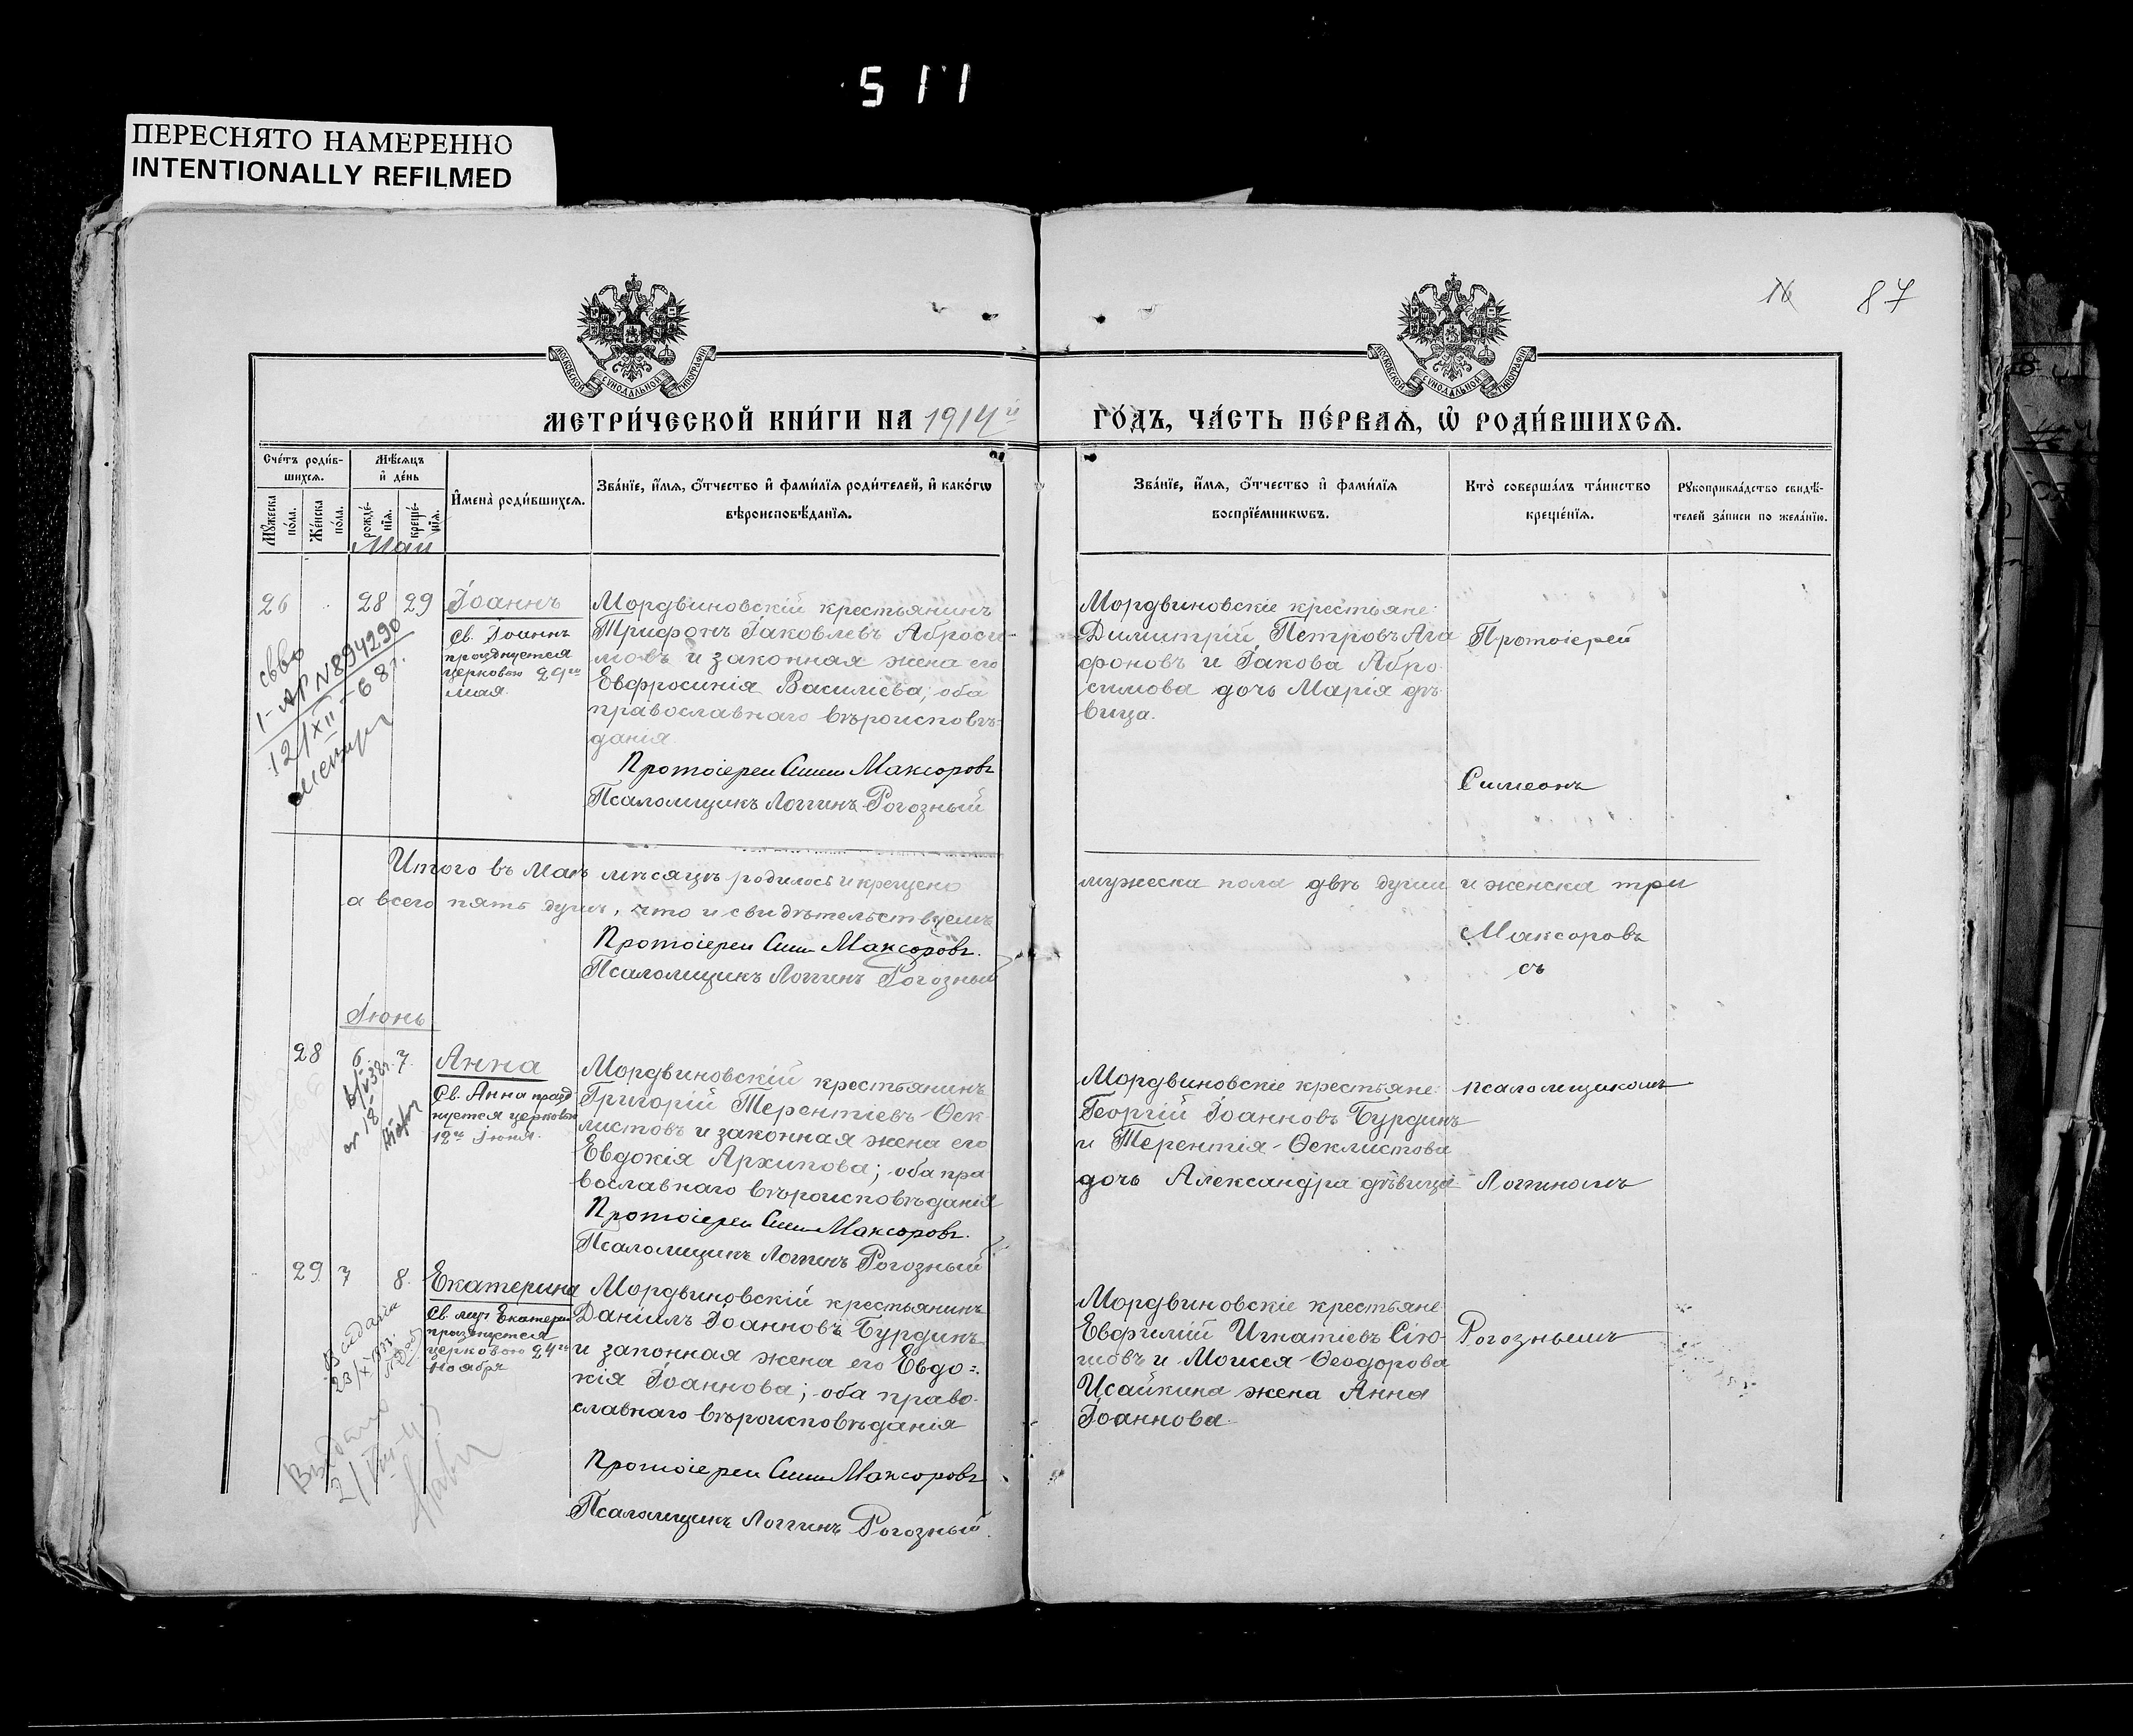 511
ПЕРЕСНЯТО НАМЕРЕННО
INTENTIONALLY REFILMED
87
МОСКОВСКОЙ СѴНОДАЛЬНОЙ ТИПОГРАФІИ
МОСКОВСКОЙ СѴНОДАЛЬНОЙ ТИПОГРАФІИ
МЕТРИ́ЧЕСКОЙ КНИ́ГИ НА 1914й
ГО́ДЪ, ЧА́СТЬ ПЕ́РВАѦ, Ѡ҆ РОДИ́ВШИХСѦ.
Сче́тъ роди́в-
шихсѧ.
Мꙋ́жеска
по́ла.
Же́нска
по́ла.
Мѣ́сѧцъ
и҆ де́нь
рожде́-
нїѧ.
креще́-
нїѧ.
Май
И҆мена̀ роди́вшихсѧ.
Зва́нїе, и҆́мѧ, ѻ҆́тчество и҆ фами́лїѧ роди́телей, и҆ како́гѡ
вѣроисповѣ́данїѧ.
Зва́нїе, и҆́мѧ, ѻ҆́тчество и҆ фами́лїѧ
воспрїе́мникѡвъ.
Кто̀ соверша́лъ та́инство
креще́нїѧ.
Рꙋкоприкла́дство свидѣ́-
телей за́писи по жела́нїю.
26
28 29
Іоаннъ
Св. Іоаннъ
празднуется
церковью 29го
мая.
Мордвиновскій крестьянинъ
Трифонъ Іаковлевъ Аброси-
мовъ и законная жена его
Евфросинія Василіева; оба
православнаго вѣроисповѣ-
данія.
Протоіерей Симе Максоровъ
Псаломщикъ Логгинъ Рогозный
Мордвиновскіе крестьяне:
Димитрій Петровъ Ага
фоновъ и Іакова Абро
симова дочь Марія дѣ
вица.
Протоіерей
Симеонъ
свво
I-АР N894290
12/XII-68г.
Итого въ маѣ мѣсяцѣ родилось и крещено
мужеска пола двѣ души и женска три
а всего пять душъ, что и свидѣтельствуемъ
Протоіерей Сим Максоровъ.
Псаломщикъ Логгинъ Рогозный
Максоровъ
съ
Іюнь
28
6. 7.
Анна
Св. Анна празд
нуется церковью
12го Іюня.
Мордвиновскій крестьянинъ
Григорій Терентіевъ Ѳек
листовъ и законная жена его
Евдокія Архипова; оба пра
вославнаго вѣроисповѣданія
Протоіерей Сим Максоровъ.
Псаломщикъ Логгинъ Рогозный
Мордвиновскіе крестьяне:
Георгій Іоанновъ Бурдинъ
и Терентія Ѳеклистова
дочь Александра дѣвица
псаломщикомъ
Логгиномъ
29 7 8.
Екатерина
Св. муч Екатерин
празднуется
церковью 24го
ноября
Мордвиновскій крестьянинъ
Даніилъ Іоанновъ Бурдинъ
и законная жена его Евдо=
кія Іоаннова; оба право-
славнаго вѣроисповѣданія
Протоіерей Сим Максоровъ
Псаломщикъ Логгинъ Рогозный.
Мордвиновскіе крестьяне
Евфимій Игнатіевъ Сіто-
Моисея Ѳеодорова
Исайкина жена Анна
Іоаннова.
Рогознымъ
Выдано